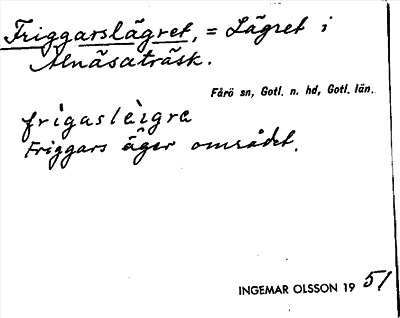 Friggarslägret, = Lägret i
Alnäsaträsk.
Fårö sn, Gotl. n. hd, Gotl. län.
frìgaslèigrα
Friggars äger området.
INGEMAR OLSSON 19 51